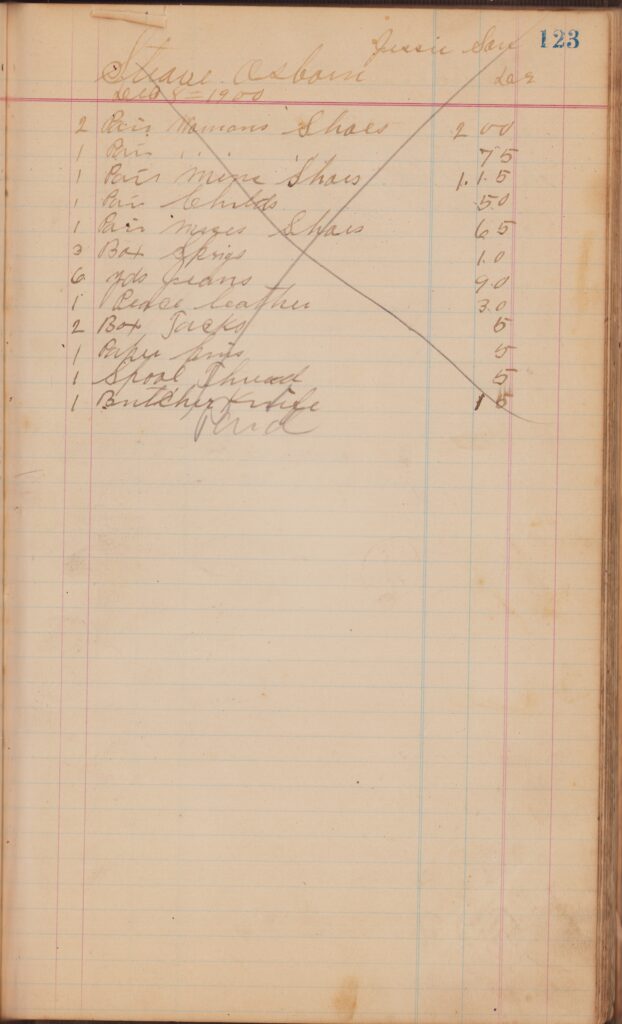 123
Jessie Son
Steave Osborn Dr
Dec 8 = 1900
2 Pair Womans Shoes 2 00
1 Pair " " 75
1 Pair Mens Shoes 1.15
1 Pair Childs 50
1 Pair Shoes 65
3 Box Sprigs 10
6 yds jeans 90
1 Peace leather 30
2 Box Tacks 5
1 Paper pins 5
1 Spool Thread 5
1 Butcher Knife 15
Paid